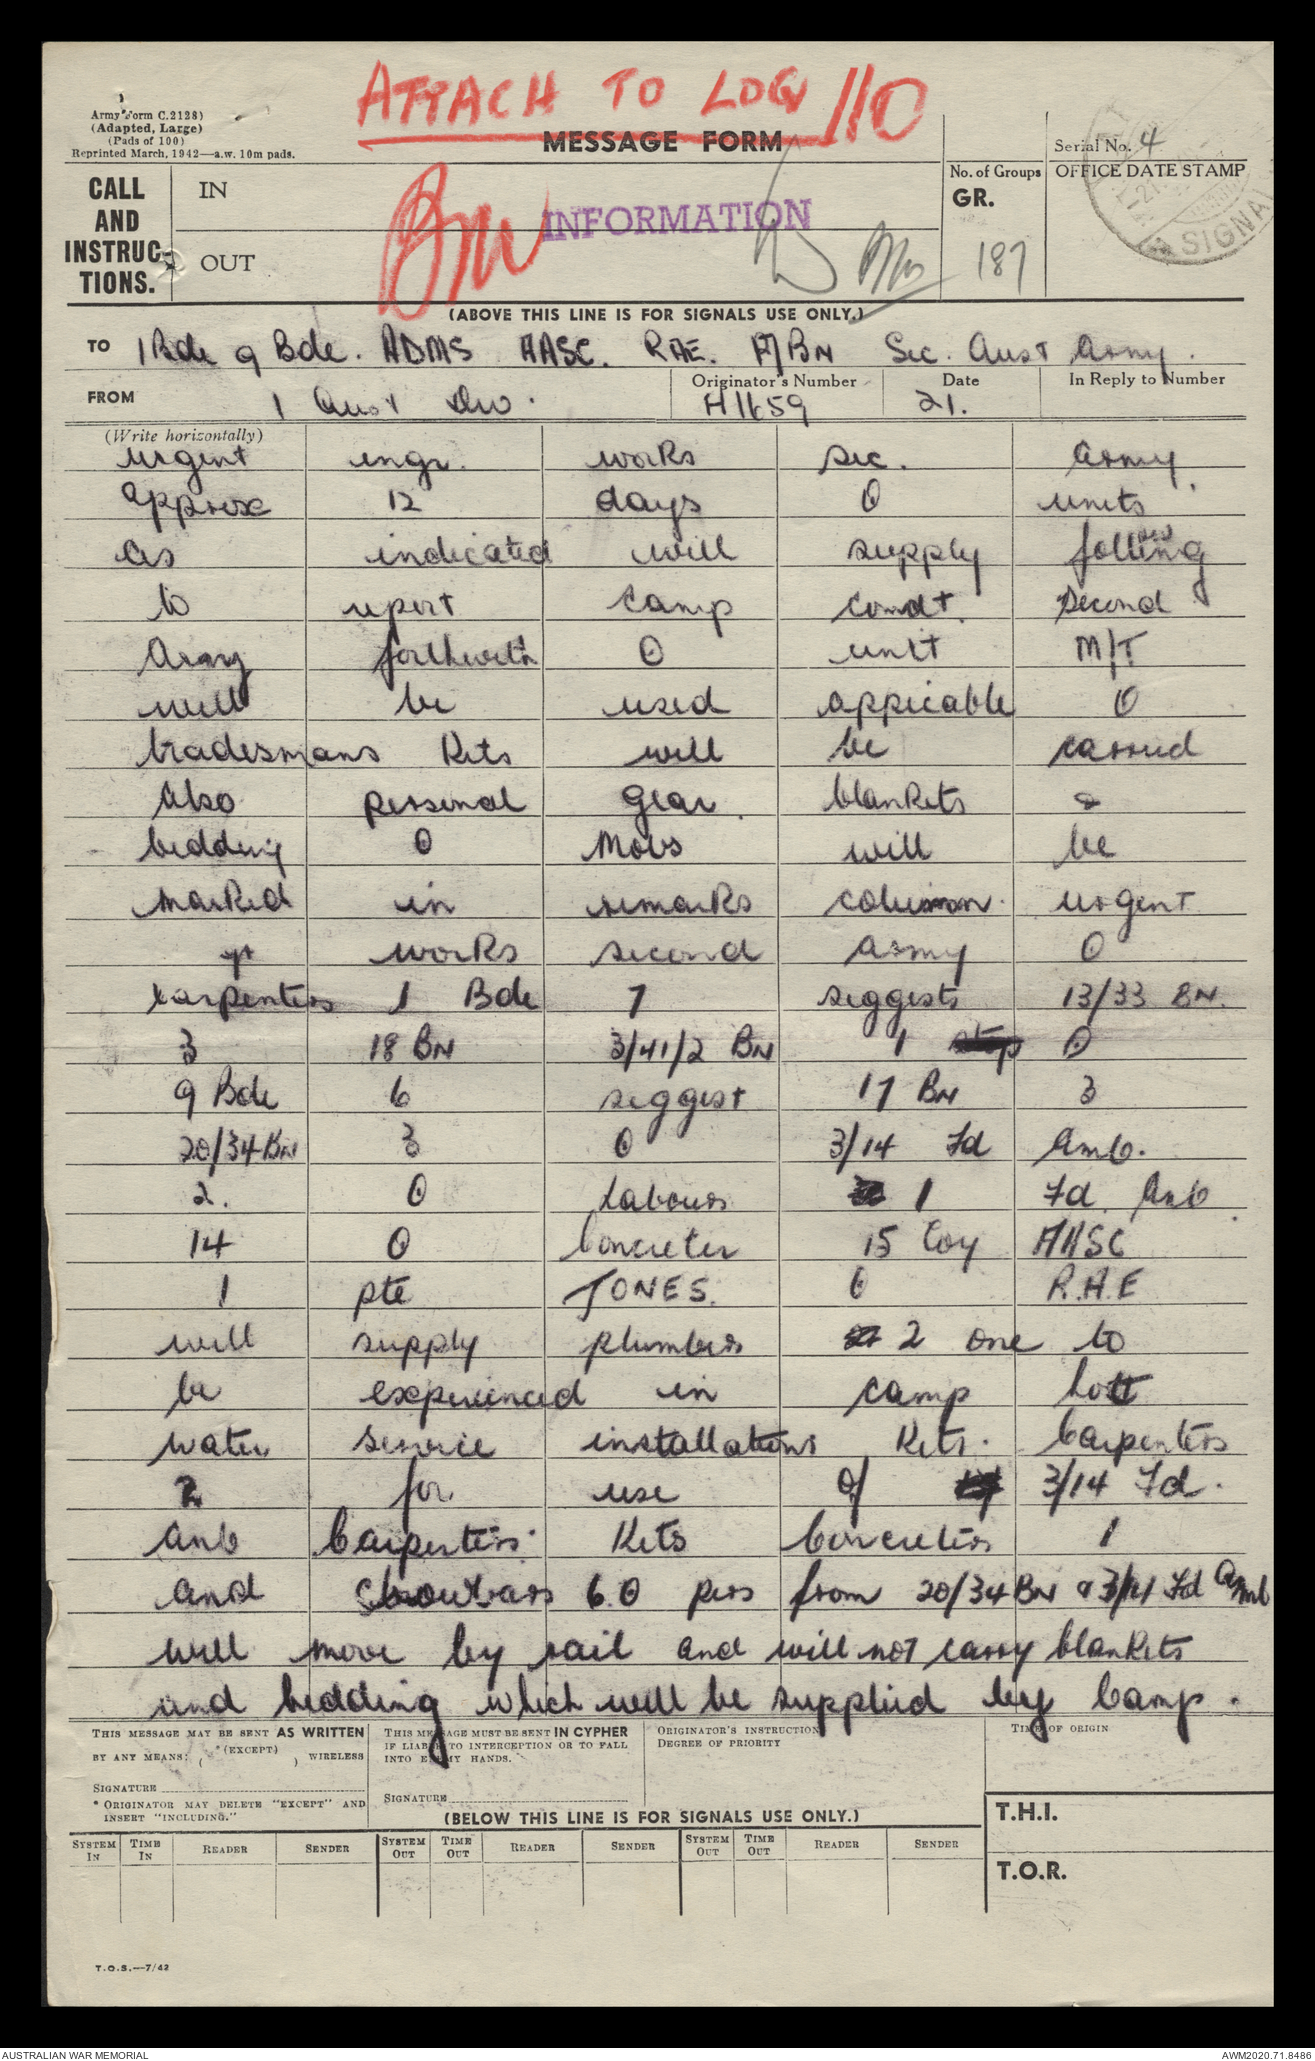 ATTACH TO LOG 110
Army Form C.2128)
(Adapted, Large)
(Pads of 100)
Reprinted March, 1942—a.w. 10m pads.
MESSAGE FORM
Serial No. 4
CALL AND INSTRUC-TIONS.
IN
OUT
INFORMATION
No. of Groups
GR.
187
OFFICE DATE STAMP
SIGNA
(ABOVE THIS LINE IS FOR SIGNALS USE ONLY.)
TO 1 Bde 9 Bde. ADMS AASC. RAE. Sec. Aust Army.
FROM 1 Aust Div.
Originator's Number H1659
Date 21.
In Reply to Number
(Write horizontally)
urgent engr. works sec. army
approx 12 days O units
as indicated will supply folling
to report camp comdt. second
Army forthwith O unit M/T
will be used appicable O
tradesmans Kits will be carried
also personal gear. blankets &
bedding O Movs will be
marked in remarks column urgent
works second army O
karpenters 1 Bde 7 seggests 13/33 BN.
3 18 BN 3/41/2 BN 1 O
9 Bde 6 seggest 17 BN 3
20/34 BN 3 O 3/14 Fd Amb.
2. O Labours 1 Fd. Amb
14 O Concreter 15 Coy AASC
1 pte JONES. O R.A.E
will supply plumbers 2 one to
be experienced in camp hott
water service installations Kits. Carpenters
2 for use of 3/14 Fd.
Amb Carpenters Kits Concreters 1
and Crowbars 6 O pers from 20/34 BN & 3/14 Fd Amb
will move by rail and will not carry blankets
and bedding which will be supplied by Camp.
THIS MESSAGE MAY BE SENT AS WRITTEN
BY ANY MEANS: *(EXCEPT) ( ) WIRELESS
SIGNATURE
* ORIGINATOR MAY DELETE "EXCEPT" AND
INSERT "INCLUDING."
THIS MESSAGE MUST BE SENT IN CYPHER
IF LIABLE TO INTERCEPTION OR TO FALL
INTO ENEMY HANDS.
SIGNATURE
ORIGINATOR'S INSTRUCTION
DEGREE OF PRIORITY
TIME OF ORIGIN
(BELOW THIS LINE IS FOR SIGNALS USE ONLY.)
T.H.I.
T.O.R.
SYSTEM IN TIME IN READER SENDER SYSTEM OUT TIME OUT READER SENDER SYSTEM OUT TIME OUT READER SENDER
T.O.S.—7/42
AUSTRALIAN WAR MEMORIAL
AWM2020.71.8486